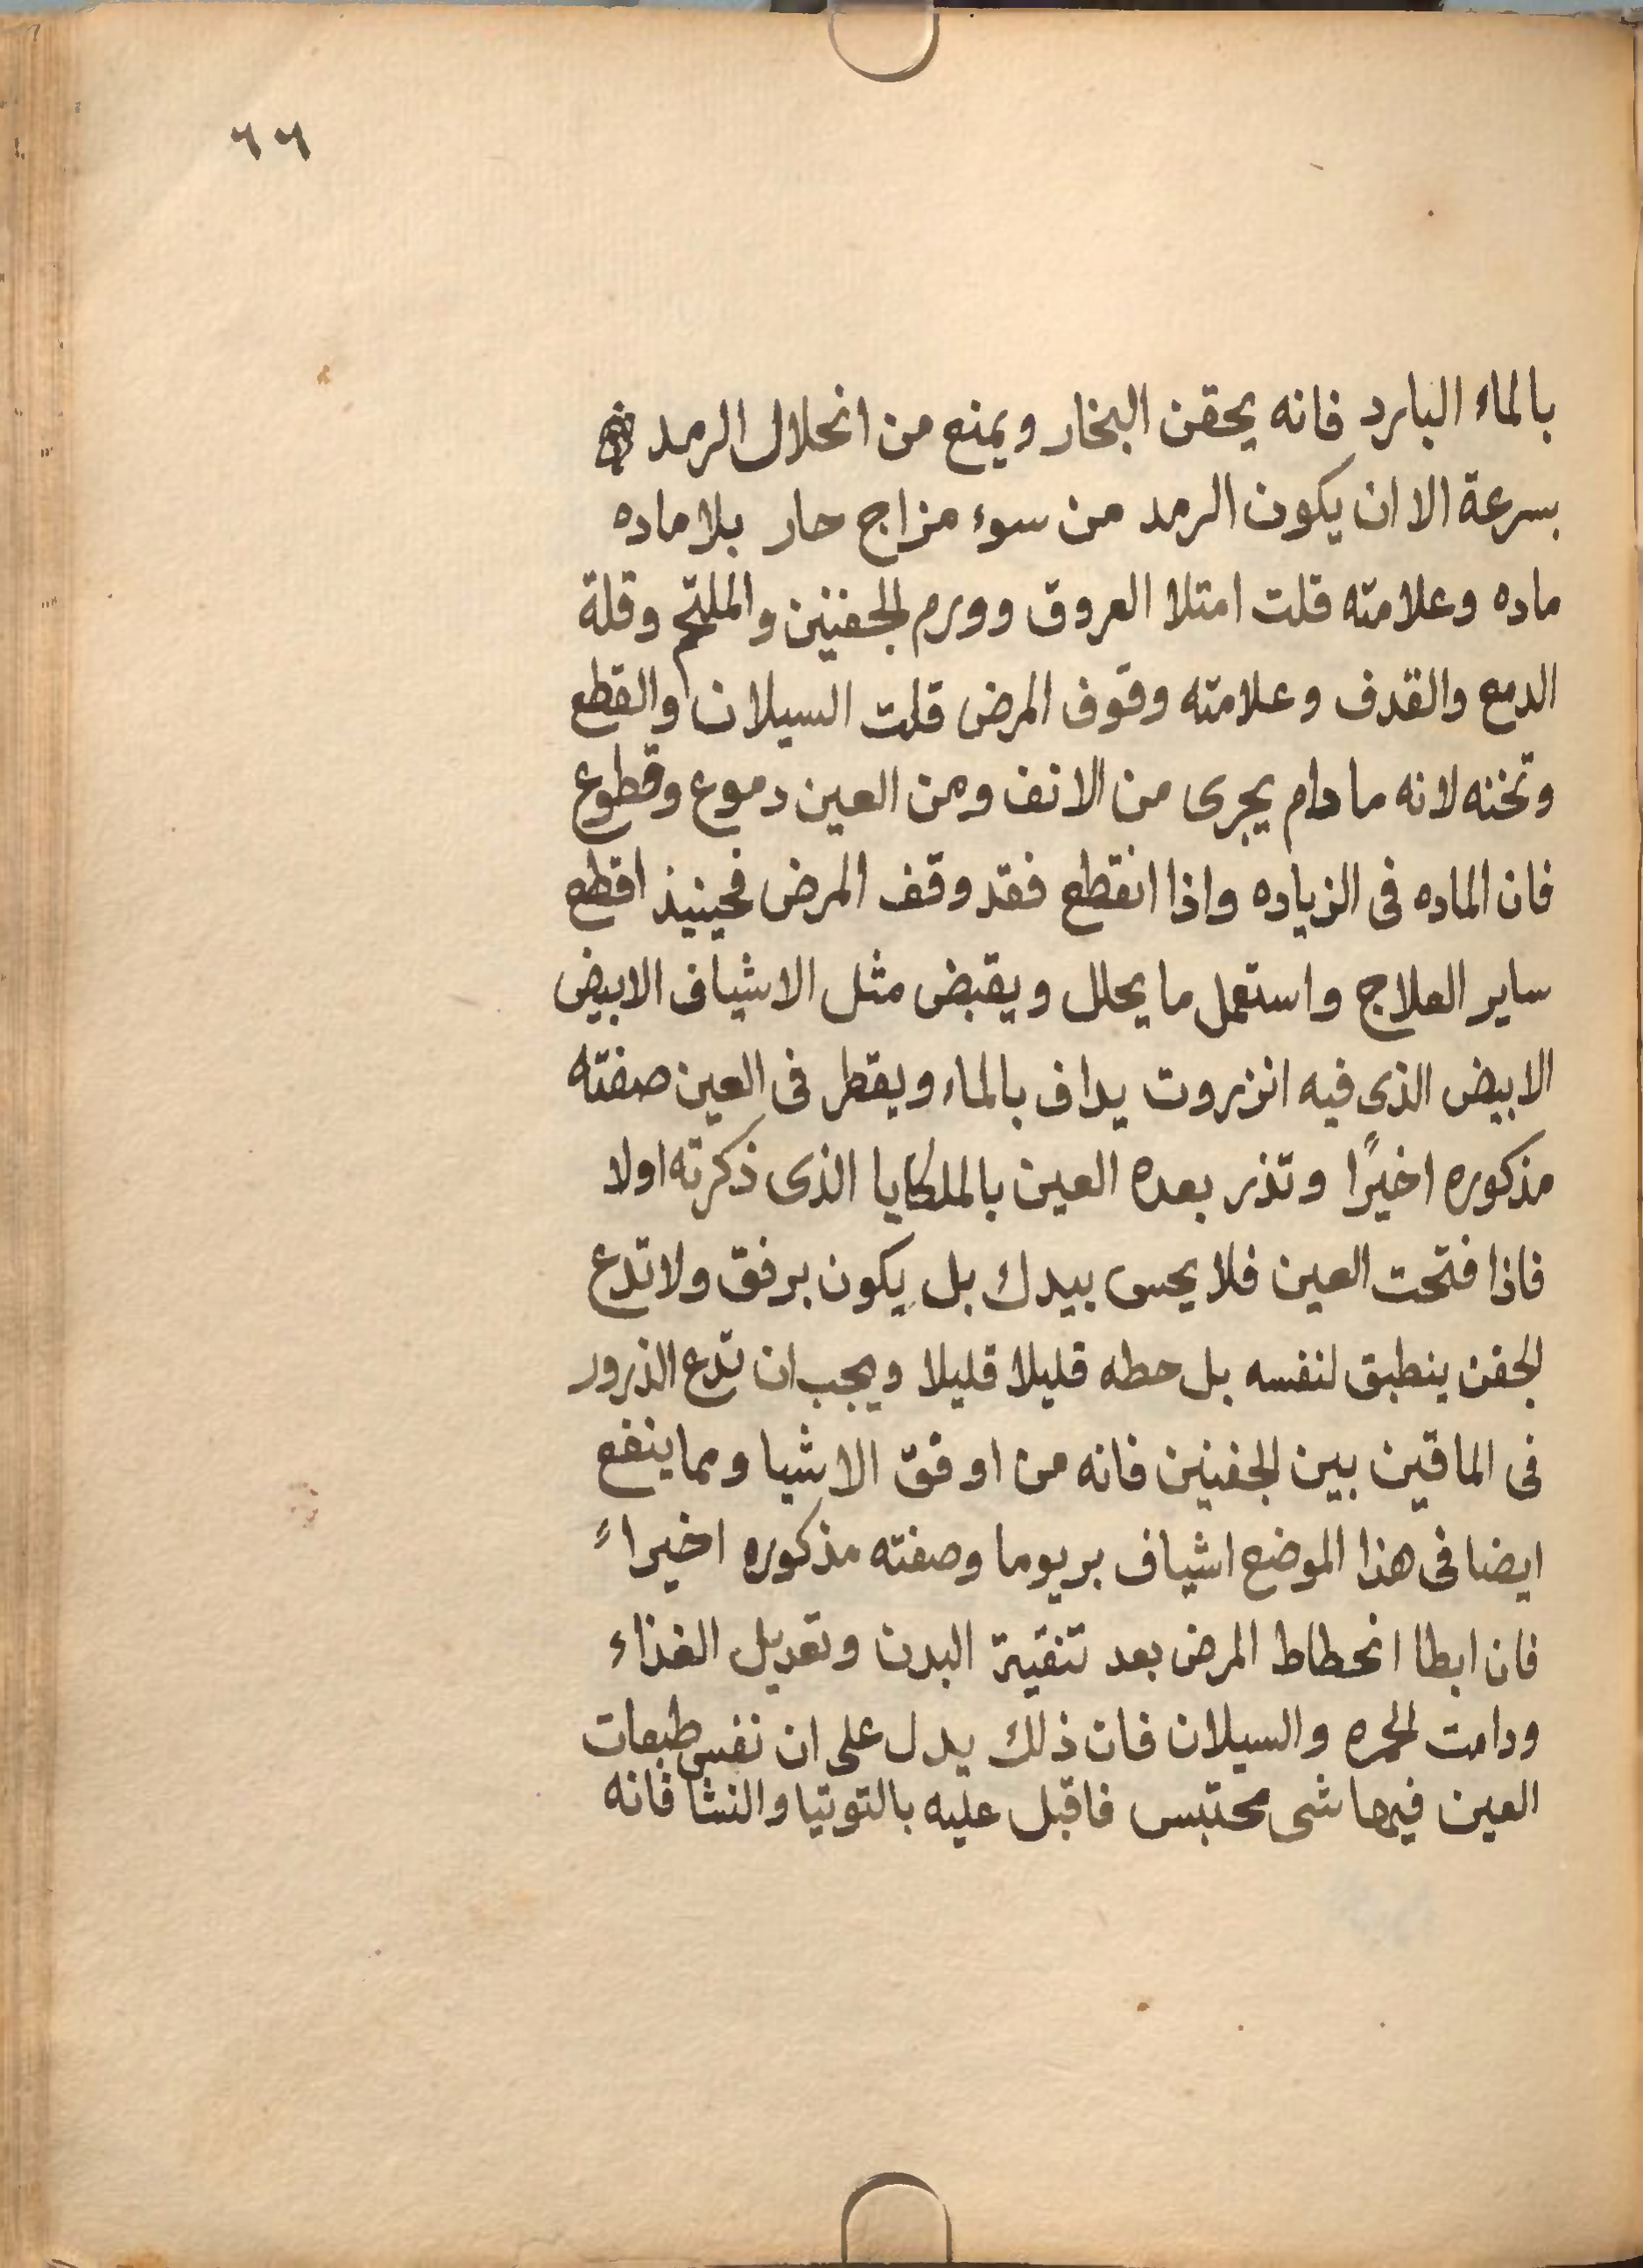 ٦٦
بالماء البارد فانه يحقن البخار ويمنع من انحلال الرمد
بسرعة الا ان يكون الرمد من سوء مزاج حار بلا ماده
ماده وعلامته قلت امتلا العروق وورم الجفنين والملتحم وقلة
الدمع والقدف وعلامته وقوف المرض قلت السيلان والقطع
وتخنه لانه مادام يجرى من الانف ومن العين دموع وقطوع
فان الماده فى الزياده واذا انقطع فقد وقف المرض فحينيذ اقطع
ساير العلاج واستعمل ما يحلل ويقبض مثل الاشياف الابيض
الابيض الذى فيه انزروت يداف بالماء ويقطر فى العين صفته
مذكوره اخيرًا وتذر بعده العين بالملكايا الذى ذكرته اولا
فاذا فتحت العين فلا يحس بيدك بل يكون برفق ولا تدع
الجفن ينطبق لنفسه بل حطه قليلا قليلا ويجب ان تدع الذرور
فى الماقين بين الجفنين فانه من اوفق الاشيا ومما ينفع
ايضا فى هذا الموضع اشياف بريوما وصفته مذكوره اخيراً
فان ابطا انحطاط المرض بعد تنقية البدن وتعديل الغذاء
ودامت الحمره والسيلان فان ذلك يدل على ان نفس طبعات
العين فيها شى محتبس فاقبل عليه بالتوتيا والنشا فانه